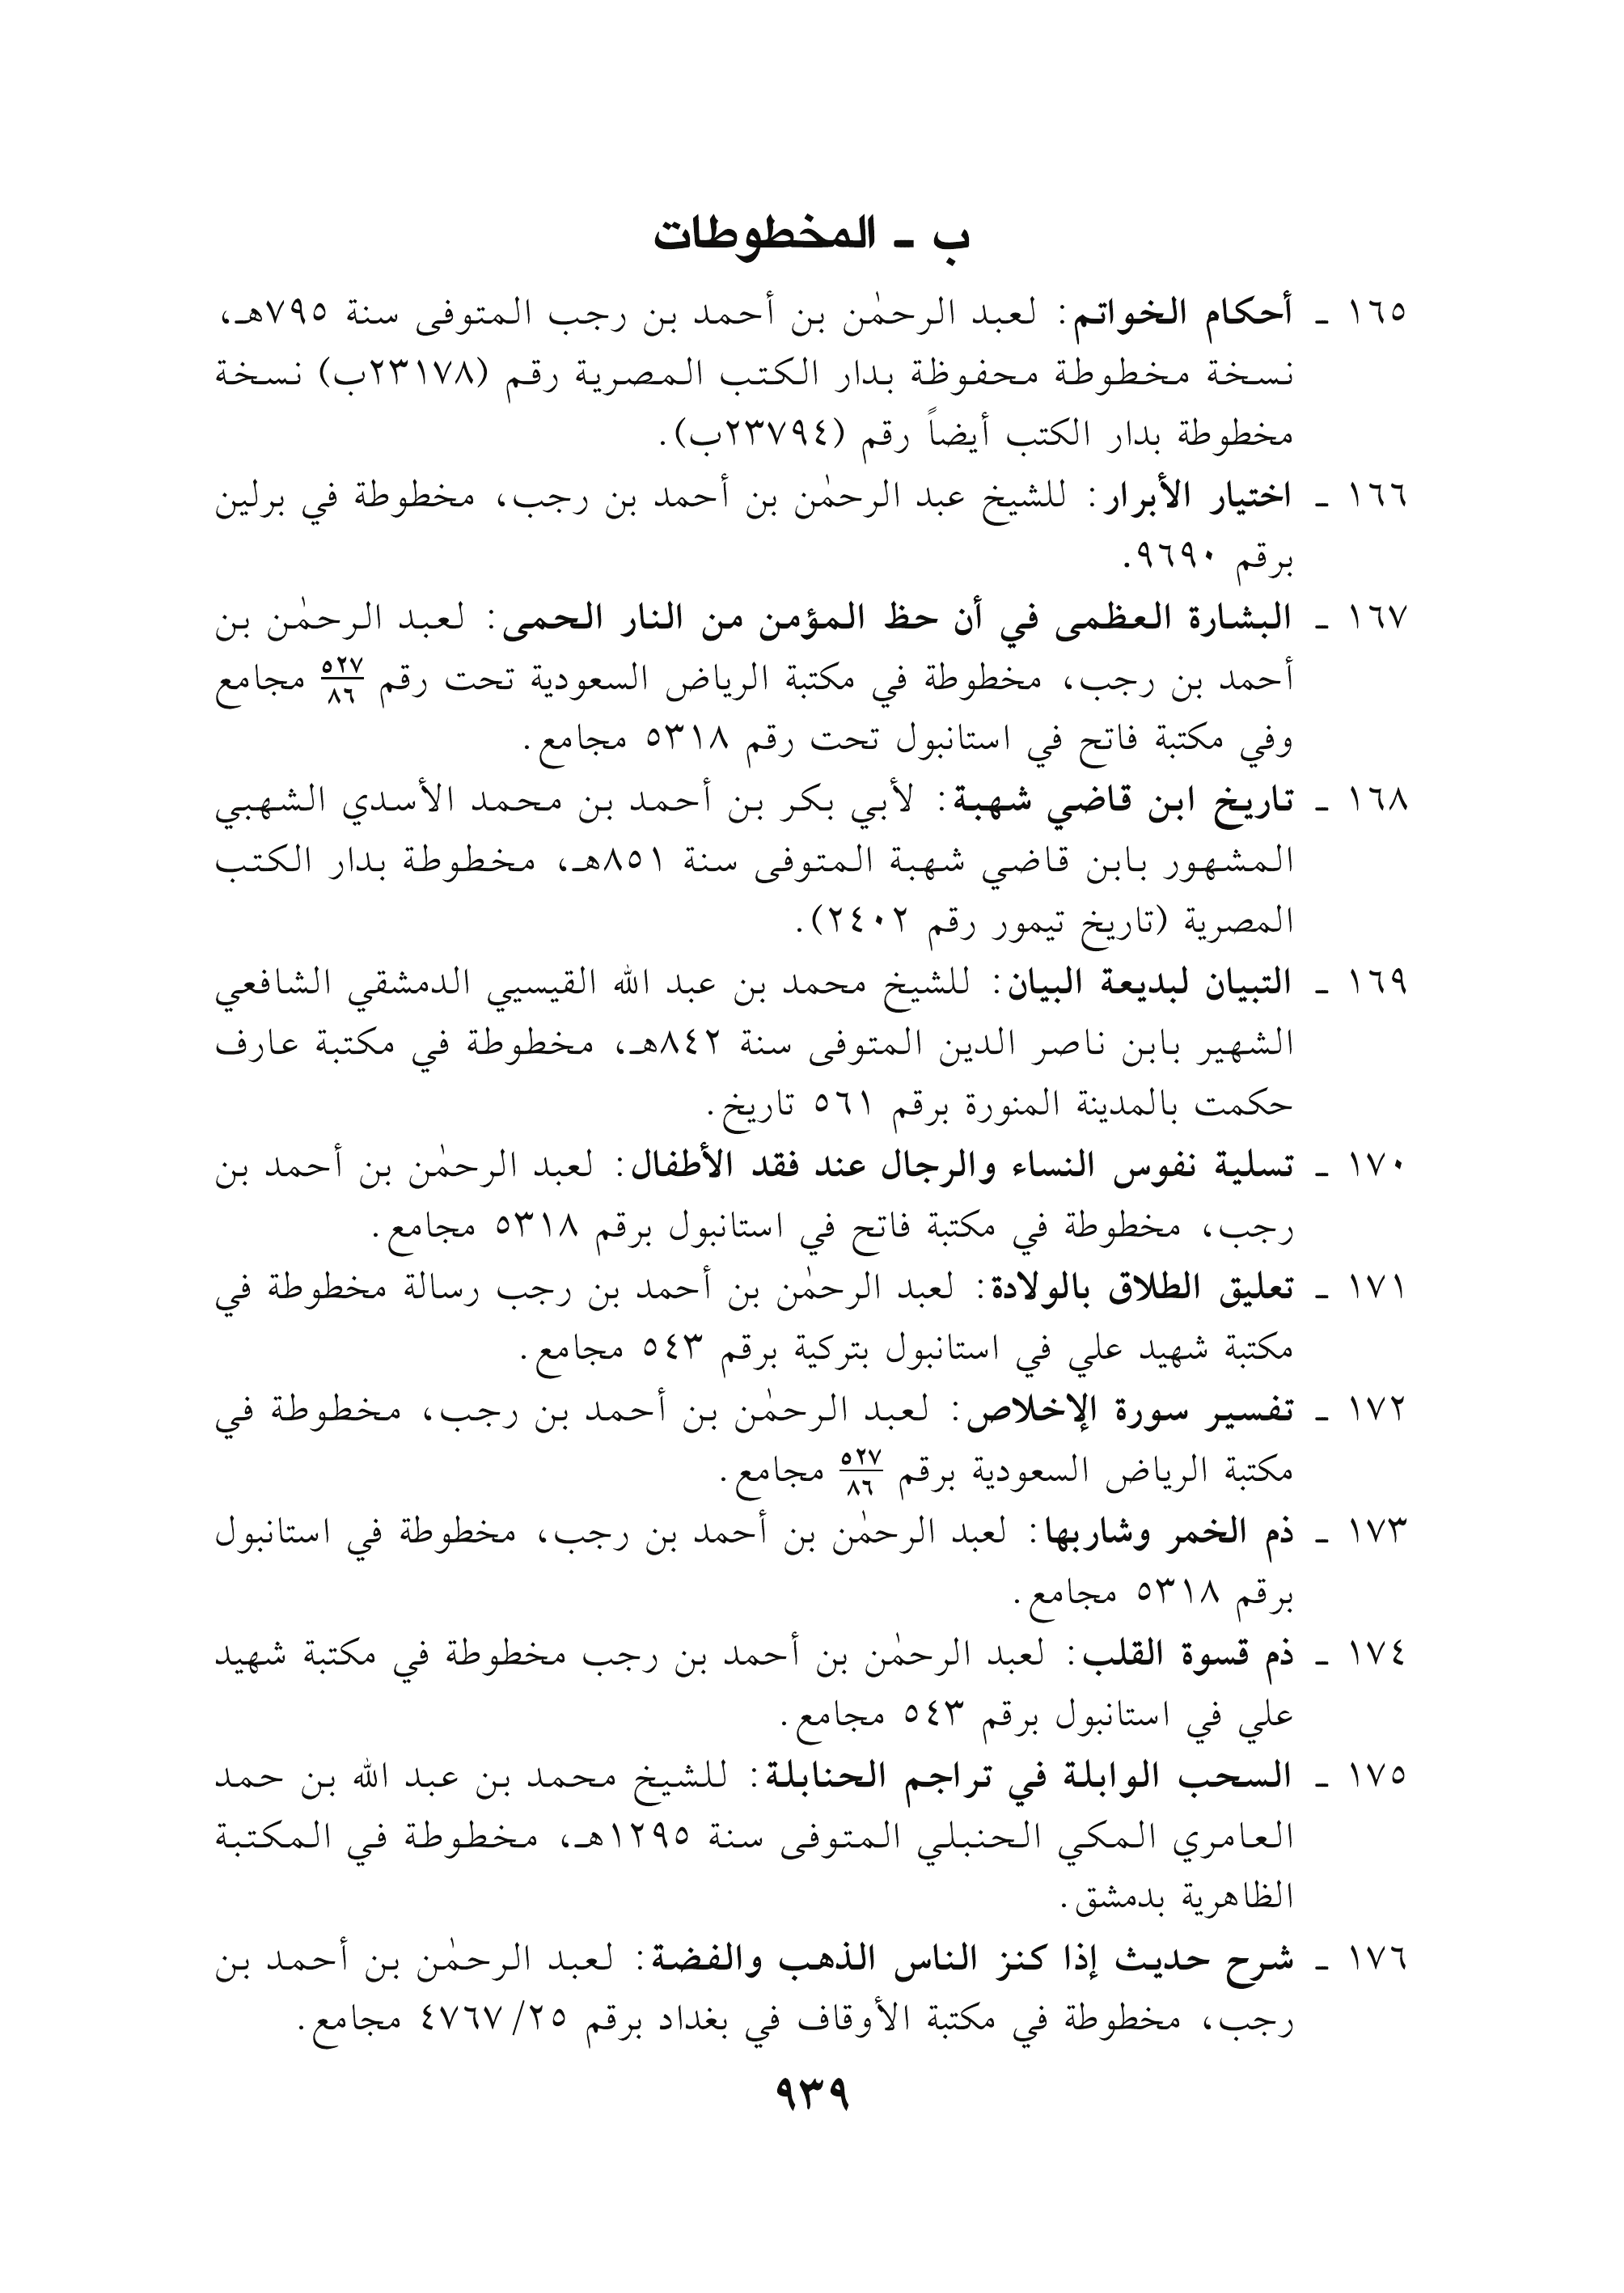 ب ـ المخطوطات
١٦٥ ـ أحكام الخواتم: لعبد الرحمٰن بن أحمد بن رجب المتوفى سنة ٧٩٥هـ،
نسخة مخطوطة محفوظة بدار الكتب المصرية رقم (٢٣١٧٨ب) نسخة
مخطوطة بدار الكتب أيضاً رقم (٢٣٧٩٤ب).
١٦٦ ـ اختيار الأبرار: للشيخ عبد الرحمٰن بن أحمد بن رجب، مخطوطة في برلين
برقم ٩٦٩٠.
١٦٧ ـ البشارة العظمى في أن حظ المؤمن من النار الحمى: لعبد الرحمٰن بن
أحمد بن رجب، مخطوطة في مكتبة الرياض السعودية تحت رقم ٥٢٧/٨٦ مجامع
وفي مكتبة فاتح في استانبول تحت رقم ٥٣١٨ مجامع.
١٦٨ ـ تاريخ ابن قاضي شهبة: لأبي بكر بن أحمد بن محمد الأسدي الشهبي
المشهور بابن قاضي شهبة المتوفى سنة ٨٥١هـ، مخطوطة بدار الكتب
المصرية (تاريخ تيمور رقم ٢٤٠٢).
١٦٩ ـ التبيان لبديعة البيان: للشيخ محمد بن عبد الله القيسيي الدمشقي الشافعي
الشهير بابن ناصر الدين المتوفى سنة ٨٤٢هـ، مخطوطة في مكتبة عارف
حكمت بالمدينة المنورة برقم ٥٦١ تاريخ.
١٧٠ ـ تسلية نفوس النساء والرجال عند فقد الأطفال: لعبد الرحمٰن بن أحمد بن
رجب، مخطوطة في مكتبة فاتح في استانبول برقم ٥٣١٨ مجامع.
١٧١ ـ تعليق الطلاق بالولادة: لعبد الرحمٰن بن أحمد بن رجب رسالة مخطوطة في
مكتبة شهيد علي في استانبول بتركية برقم ٥٤٣ مجامع.
١٧٢ ـ تفسير سورة الإخلاص: لعبد الرحمٰن بن أحمد بن رجب، مخطوطة في
مكتبة الرياض السعودية برقم ٥٢٧/٨٦ مجامع.
١٧٣ ـ ذم الخمر وشاربها: لعبد الرحمٰن بن أحمد بن رجب، مخطوطة في استانبول
برقم ٥٣١٨ مجامع.
١٧٤ ـ ذم قسوة القلب: لعبد الرحمٰن بن أحمد بن رجب مخطوطة في مكتبة شهيد
علي في استانبول برقم ٥٤٣ مجامع.
١٧٥ ـ السحب الوابلة في تراجم الحنابلة: للشيخ محمد بن عبد الله بن حمد
العامري المكي الحنبلي المتوفى سنة ١٢٩٥هـ، مخطوطة في المكتبة
الظاهرية بدمشق.
١٧٦ ـ شرح حديث إذا كنز الناس الذهب والفضة: لعبد الرحمٰن بن أحمد بن
رجب، مخطوطة في مكتبة الأوقاف في بغداد برقم ٤٧٦٧/٢٥ مجامع.
٩٣٩